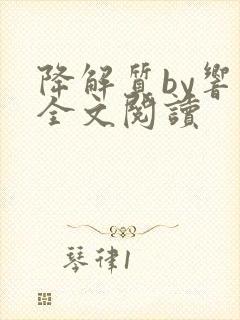 降解質by響
全文閱讀
琴律1